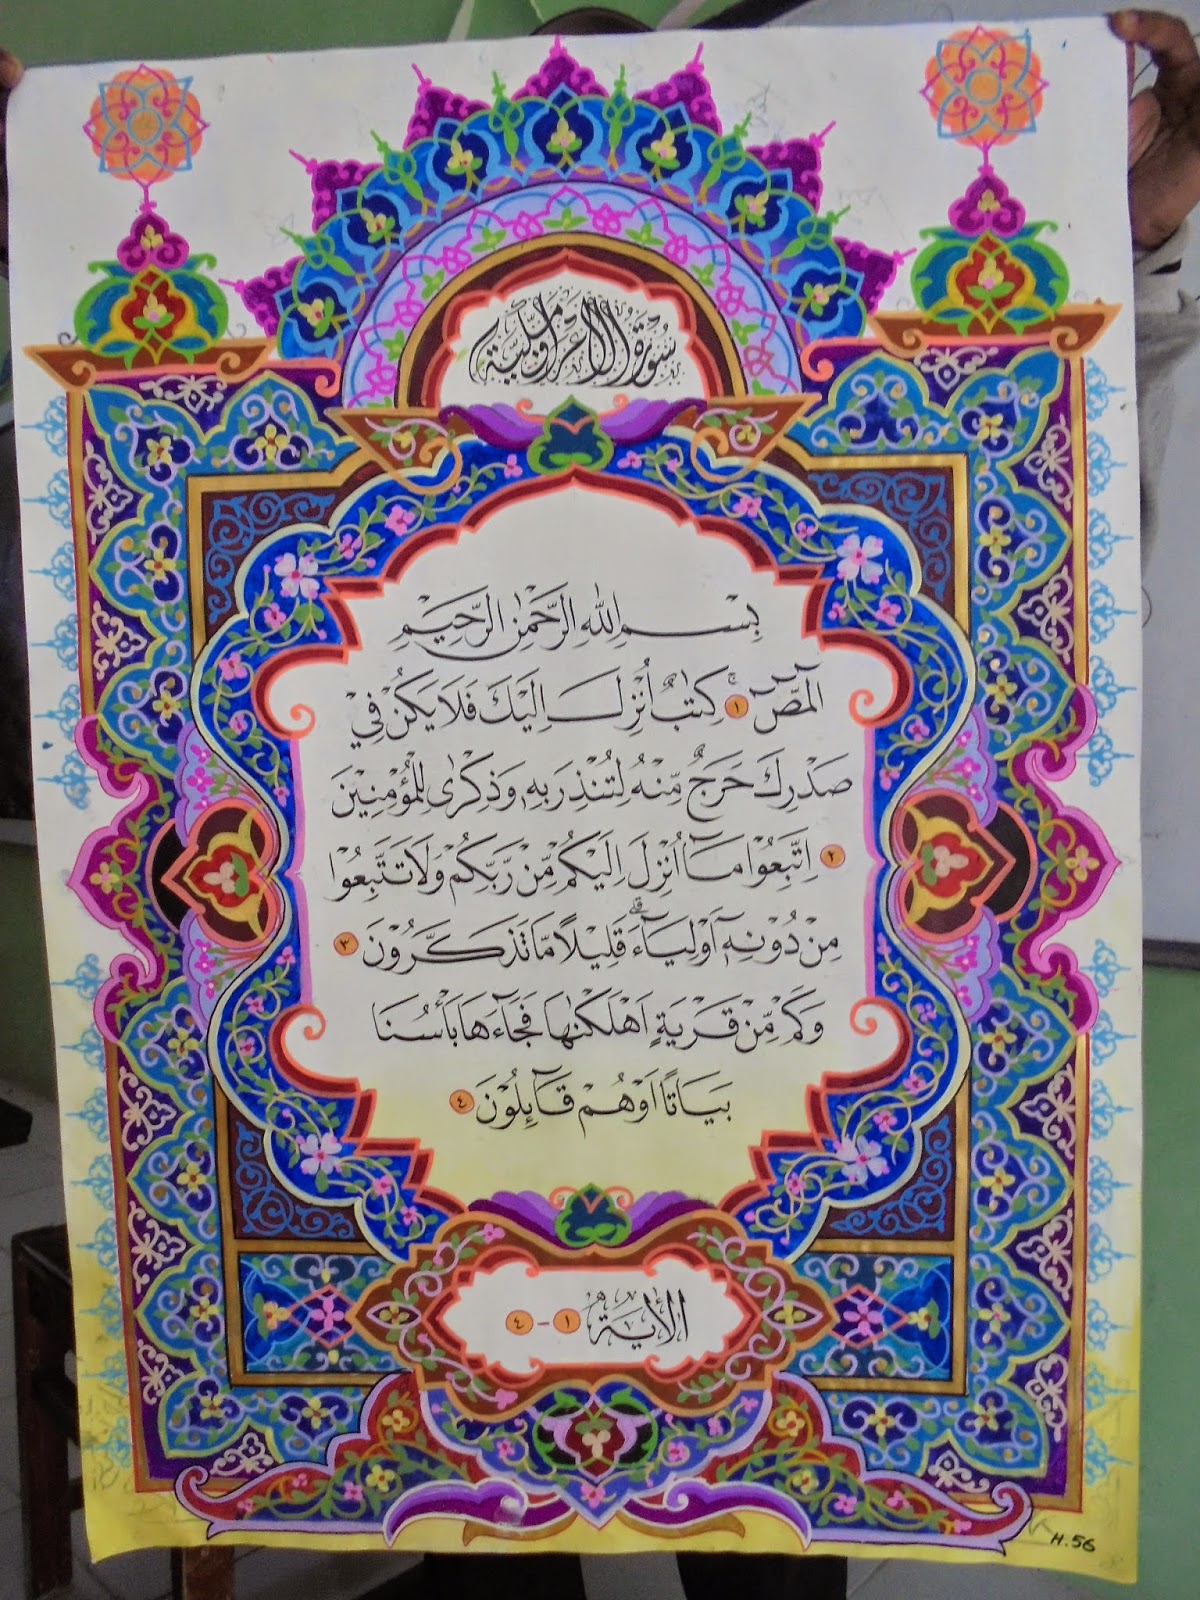 سُوْرَةُ الْأَعْرَافِ مَكِّيَّة
بِسْمِ اللّٰهِ الرَّحْمٰنِ الرَّحِيْمِ
الۤمّۤصۤ ۚ ١ كِتٰبٌ اُنْزِلَ اِلَيْكَ فَلَا يَكُنْ فِيْ
صَدْرِكَ حَرَجٌ مِّنْهُ لِتُنْذِرَ بِهٖ وَذِكْرٰى لِلْمُؤْمِنِيْنَ
٢ اِتَّبِعُوْا مَآ اُنْزِلَ اِلَيْكُمْ مِّنْ رَّبِّكُمْ وَلَا تَتَّبِعُوْا
مِنْ دُوْنِهٖٓ اَوْلِيَآءَ ۗ قَلِيْلًا مَّا تَذَكَّرُوْنَ ٣
وَكَمْ مِّنْ قَرْيَةٍ اَهْلَكْنٰهَا فَجَآءَهَا بَأْسُنَا
بَيَاتًا اَوْ هُمْ قَآئِلُوْنَ ٤
الأية ١ - ٤
H.56